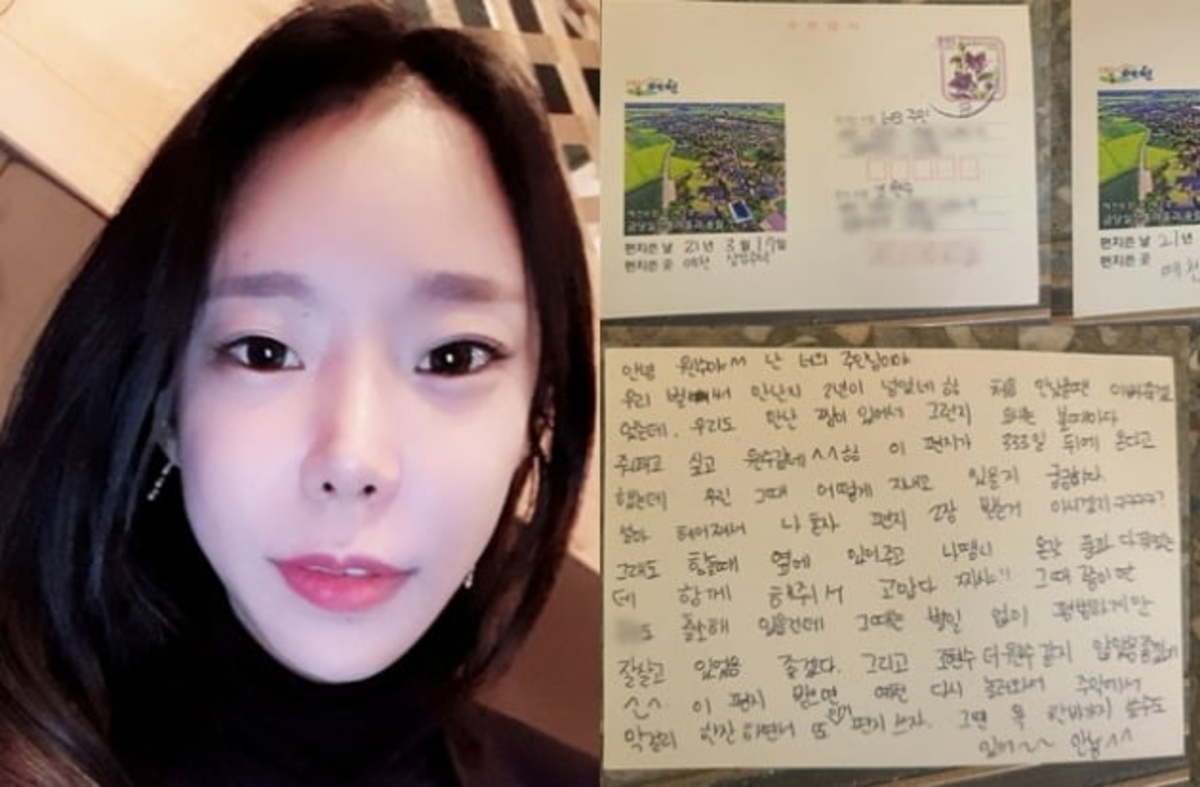 우편엽서
예천
너의 주인
조현수
편지쓴 날 21년 3월 17일
편지쓴 곳 예천 삼강주막
편지쓴 날 21년
편지쓴 곳
예천
안녕 원수야~ 난 너의 주인님이야
우리 벌써 만난지 2년이 넘었네 ㅎㅎ 처음 만났을땐
었는데, 우리도 만난 짬이 있어서 그런지 요즘은 볼때마다
주패고 싶고 원수같네^^ㅎㅎ 이 편지가 333일 뒤에 온다고
했는데 우린 그때 어떻게 지내고 있을지 궁금하다.
설마 헤어져서 나 혼자 편지 2장 받는거 아니겠지ㅋㅋㅋㅋ?
그래도 힘들때 옆에 있어주고 니땜시 온갖
데 함께 해줘서 고맙다 찌사!! 그때 쯤이면
도 출소해 있을건데 그때는 별일 없이 평범하게만
잘살고 있었음 좋겠다. 그리고 조현수 더 원수 같지 않았음좋겠네
^_^ 이 편지 받으면 예천 다시 놀러와서 주막에서
막걸리 한잔 하면서 또 편지 쓰자. 그땐
있어~~ 안뇽^^